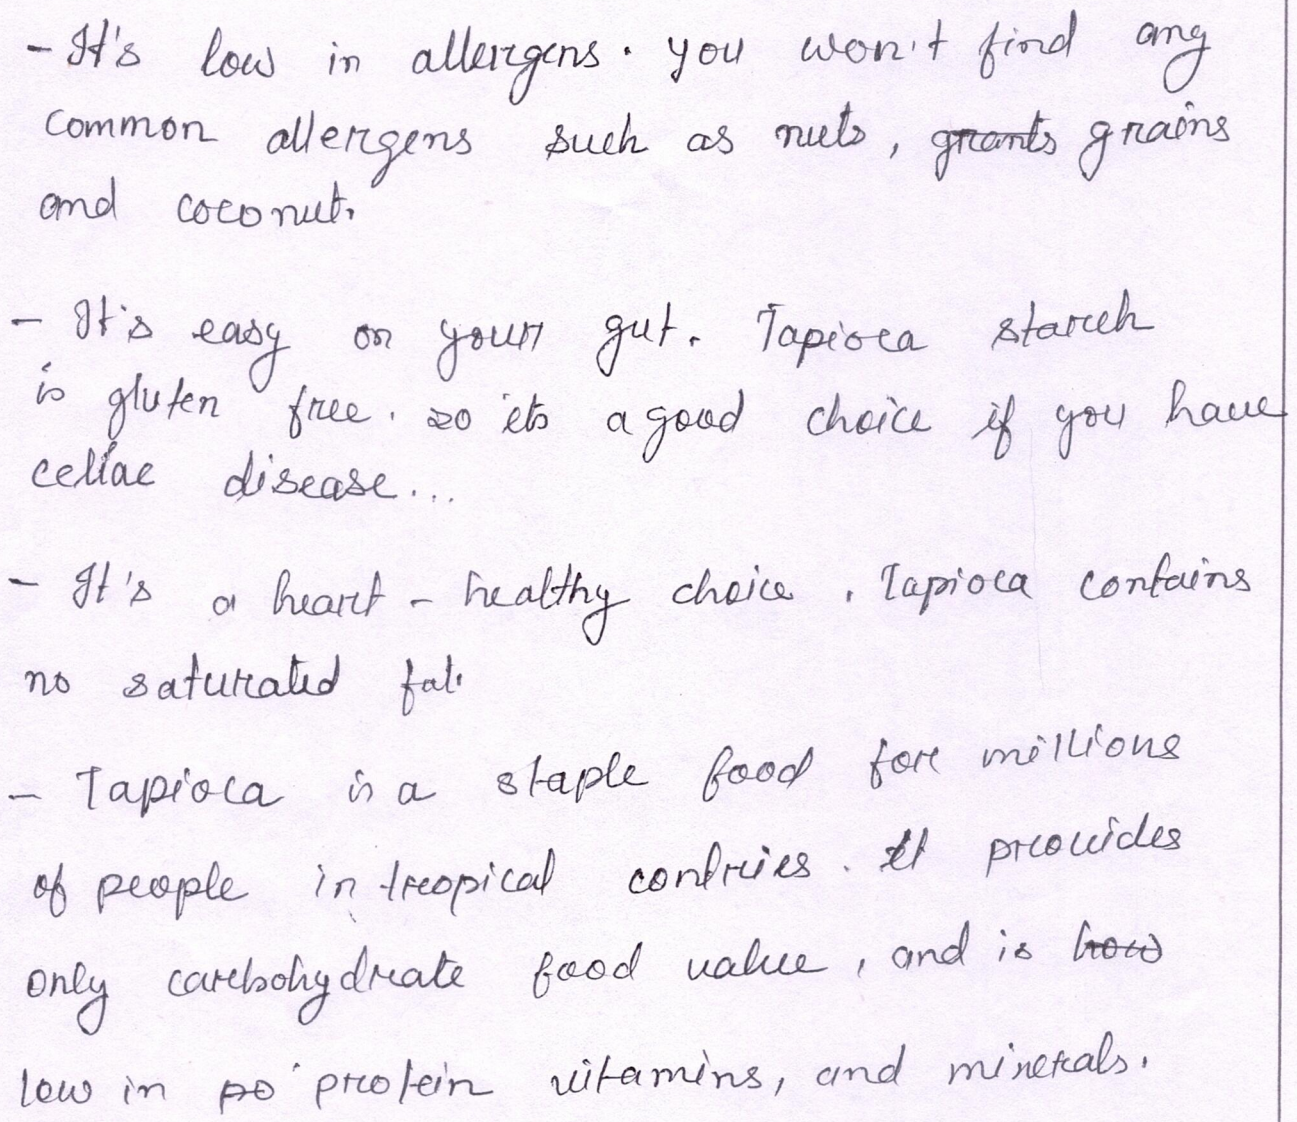 - It's low in allergens. you won't find any
common allergens such as nuts, grants grains
and coconut.
- It's easy on your gut. Tapioca starch
is gluten free. so its a good choice if you have
celiac disease...
- It's a heart - healthy choice. Tapioca contains
no saturated fat.
- Tapioca is a staple food for millions
of people in tropical contries. It provides
only carbohydrate food value, and is how
low in po protein vitamins, and minerals.